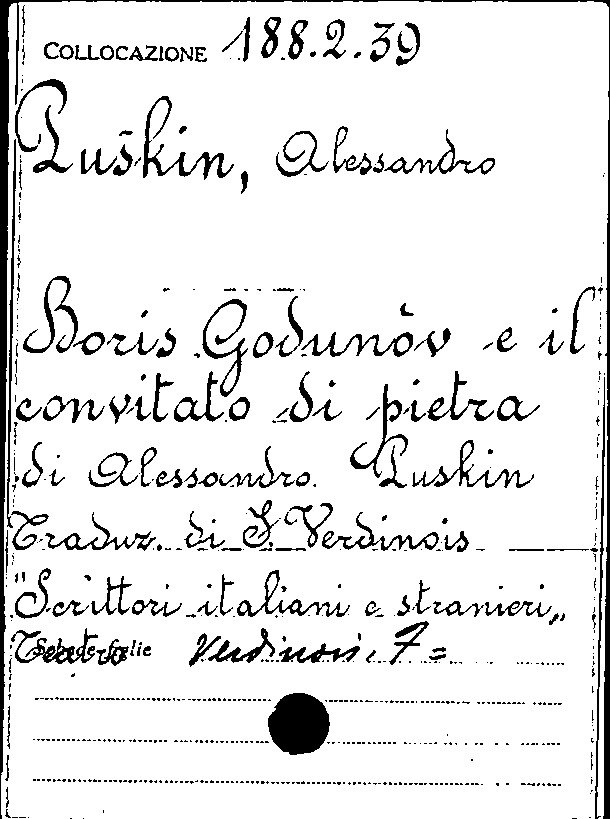 COLLOCAZIONE 188.2.39
Puškin, Alessandro
Boris Godunòv e il
convitato di pietra
di Alessandro Puskin
Traduz. di F. Verdinois
"Scrittori italiani e stranieri„
Teatro Schede figlie Verdinois, F =